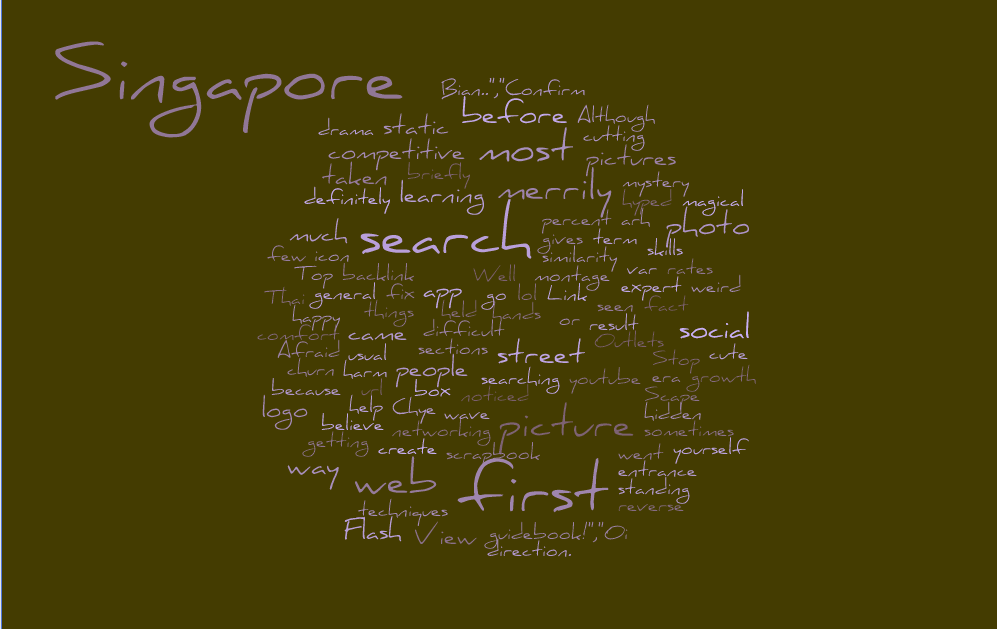 Singapore
Bian..","Confirm
before Although
drama static cutting
competitive most pictures
taken briefly mystery
definitely learning merrily hyped magical
percent arh photo
much search gives term skills
few icon similarity
Top backlink Well montage var rates
Thai general fix app go lol Link expert weird
happy things held hands seen fact
comfort came difficult or result social
Outlets
Afraid usual sections street Stop cute
churn harm people searching youtube era growth
because url box noticed Scape
logo help Chye wave hidden
believe networking picture sometimes
getting create scrapbook went yourself
way web first entrance
standing
techniques reverse
Flash View guidebook!","Oi
direction.